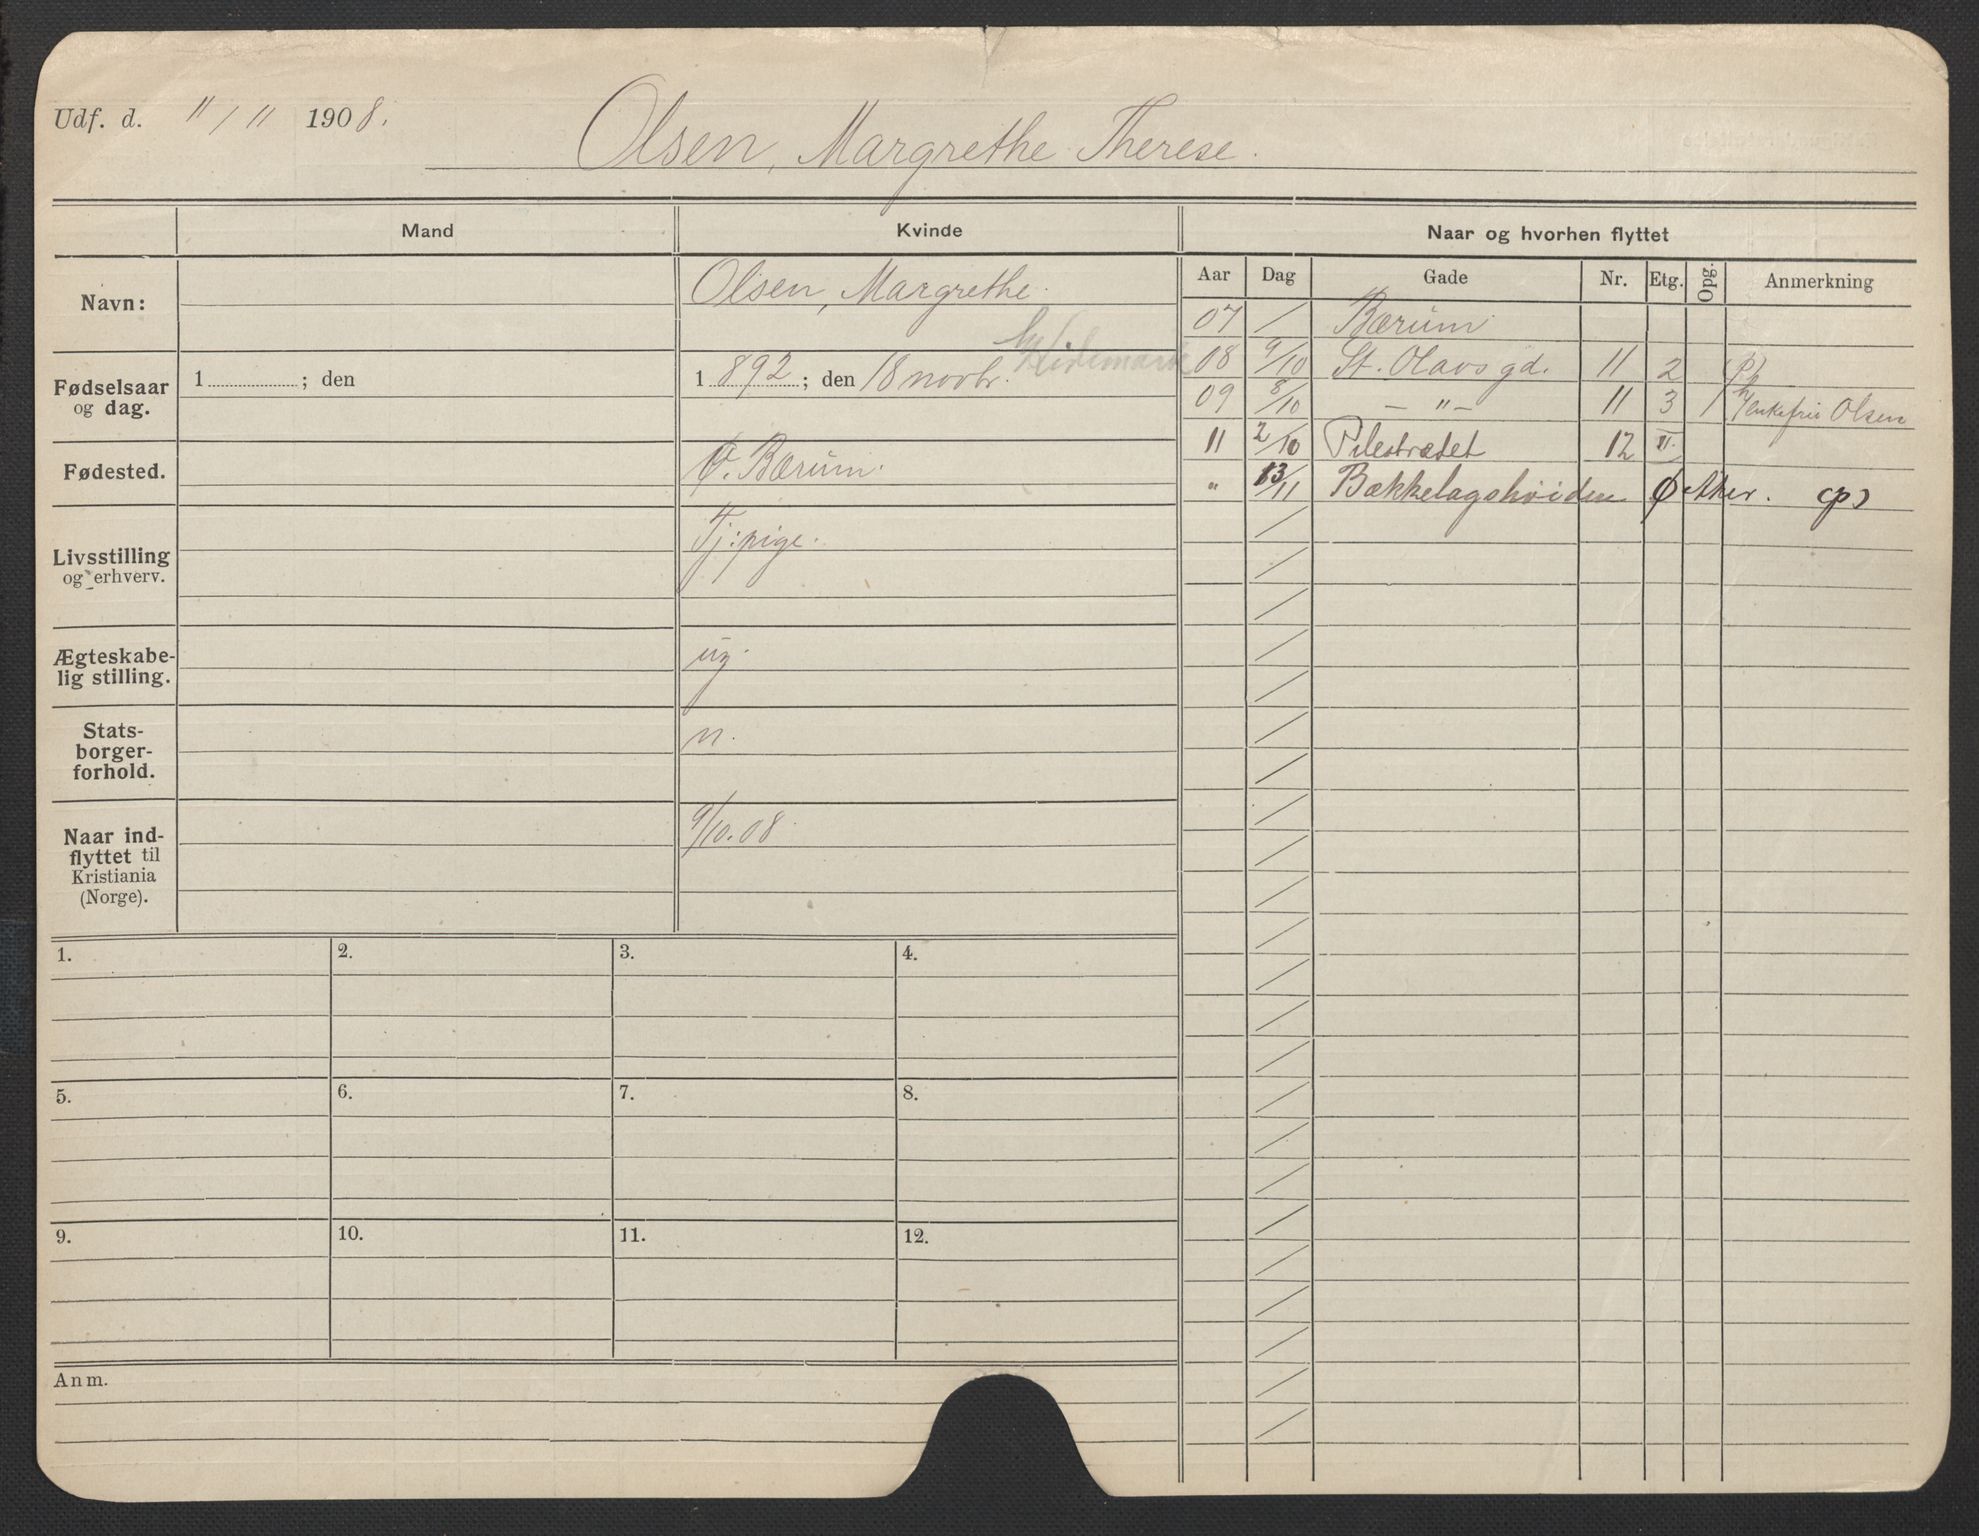 Udf. d. 11/11 1908.
Olsen, Margrethe Therese.
Mand
Kvinde
Naar og hvorhen flyttet
Navn:
Olsen, Margrethe.
Fødselsaar og dag.
1 ; den
1892 ; den 18 novbr.
Fødested.
Ø. Bærum.
Livsstilling og erhverv.
Tj.pige.
Ægteskabelig stilling.
ug.
Statsborgerforhold.
n.
Naar indflyttet til Kristiania (Norge).
9/10.08
Aar Dag Gade Nr. Etg. Opg. Anmerkning
07 / Bærum
08 9/10 St. Olavs gd. 11 2 (p)
09 8/10 — " — 11 3 / h/enkefru Olsen
11 2/10 Pilestrædet 12 II.
" 13/11 Bækkelagshøiden Ø Aker. (p)
1. 2. 3. 4.
5. 6. 7. 8.
9. 10. 11. 12.
Anm.